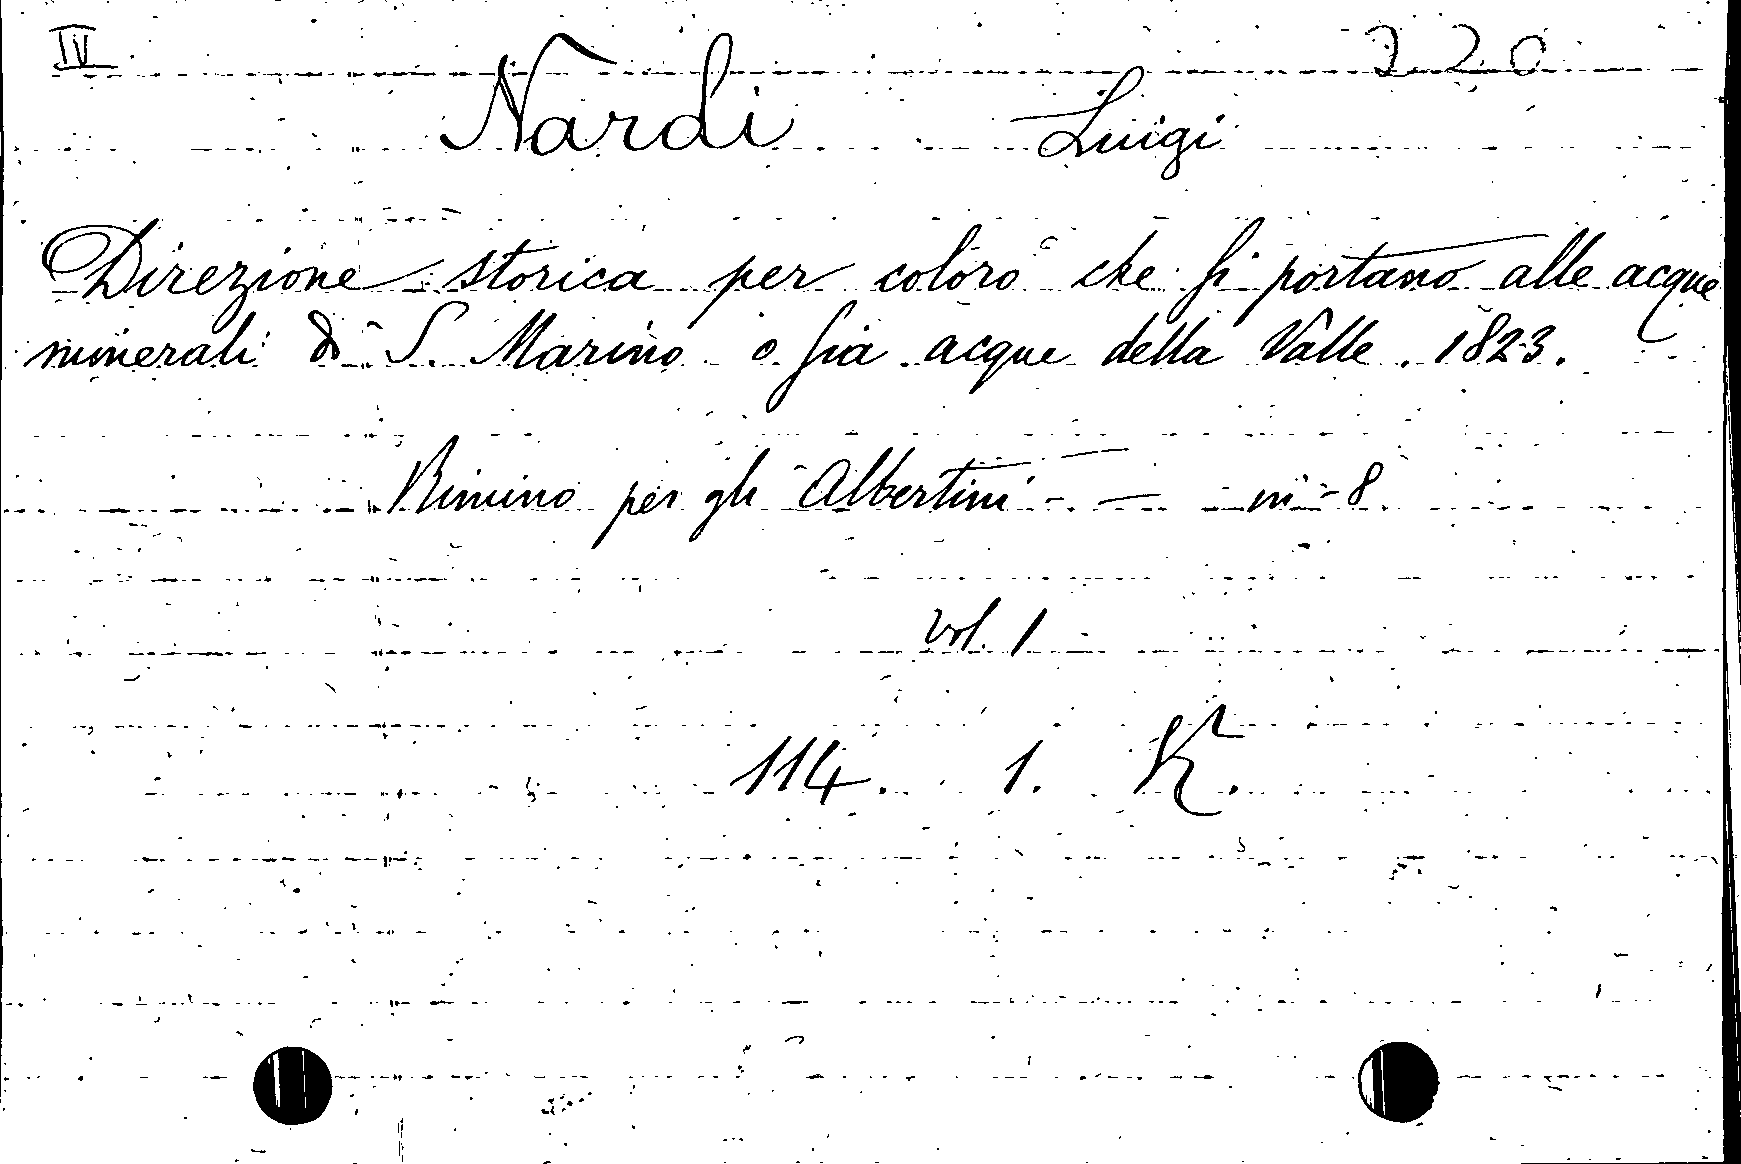 IV 220
Nardi Luigi
Direzione storica per coloro che si portano alle acque
minerali di S. Marino o sia acque della Valle. 1823.
Rimino per gli Albertini - — in - 8
Vol. 1
114. 1. K².